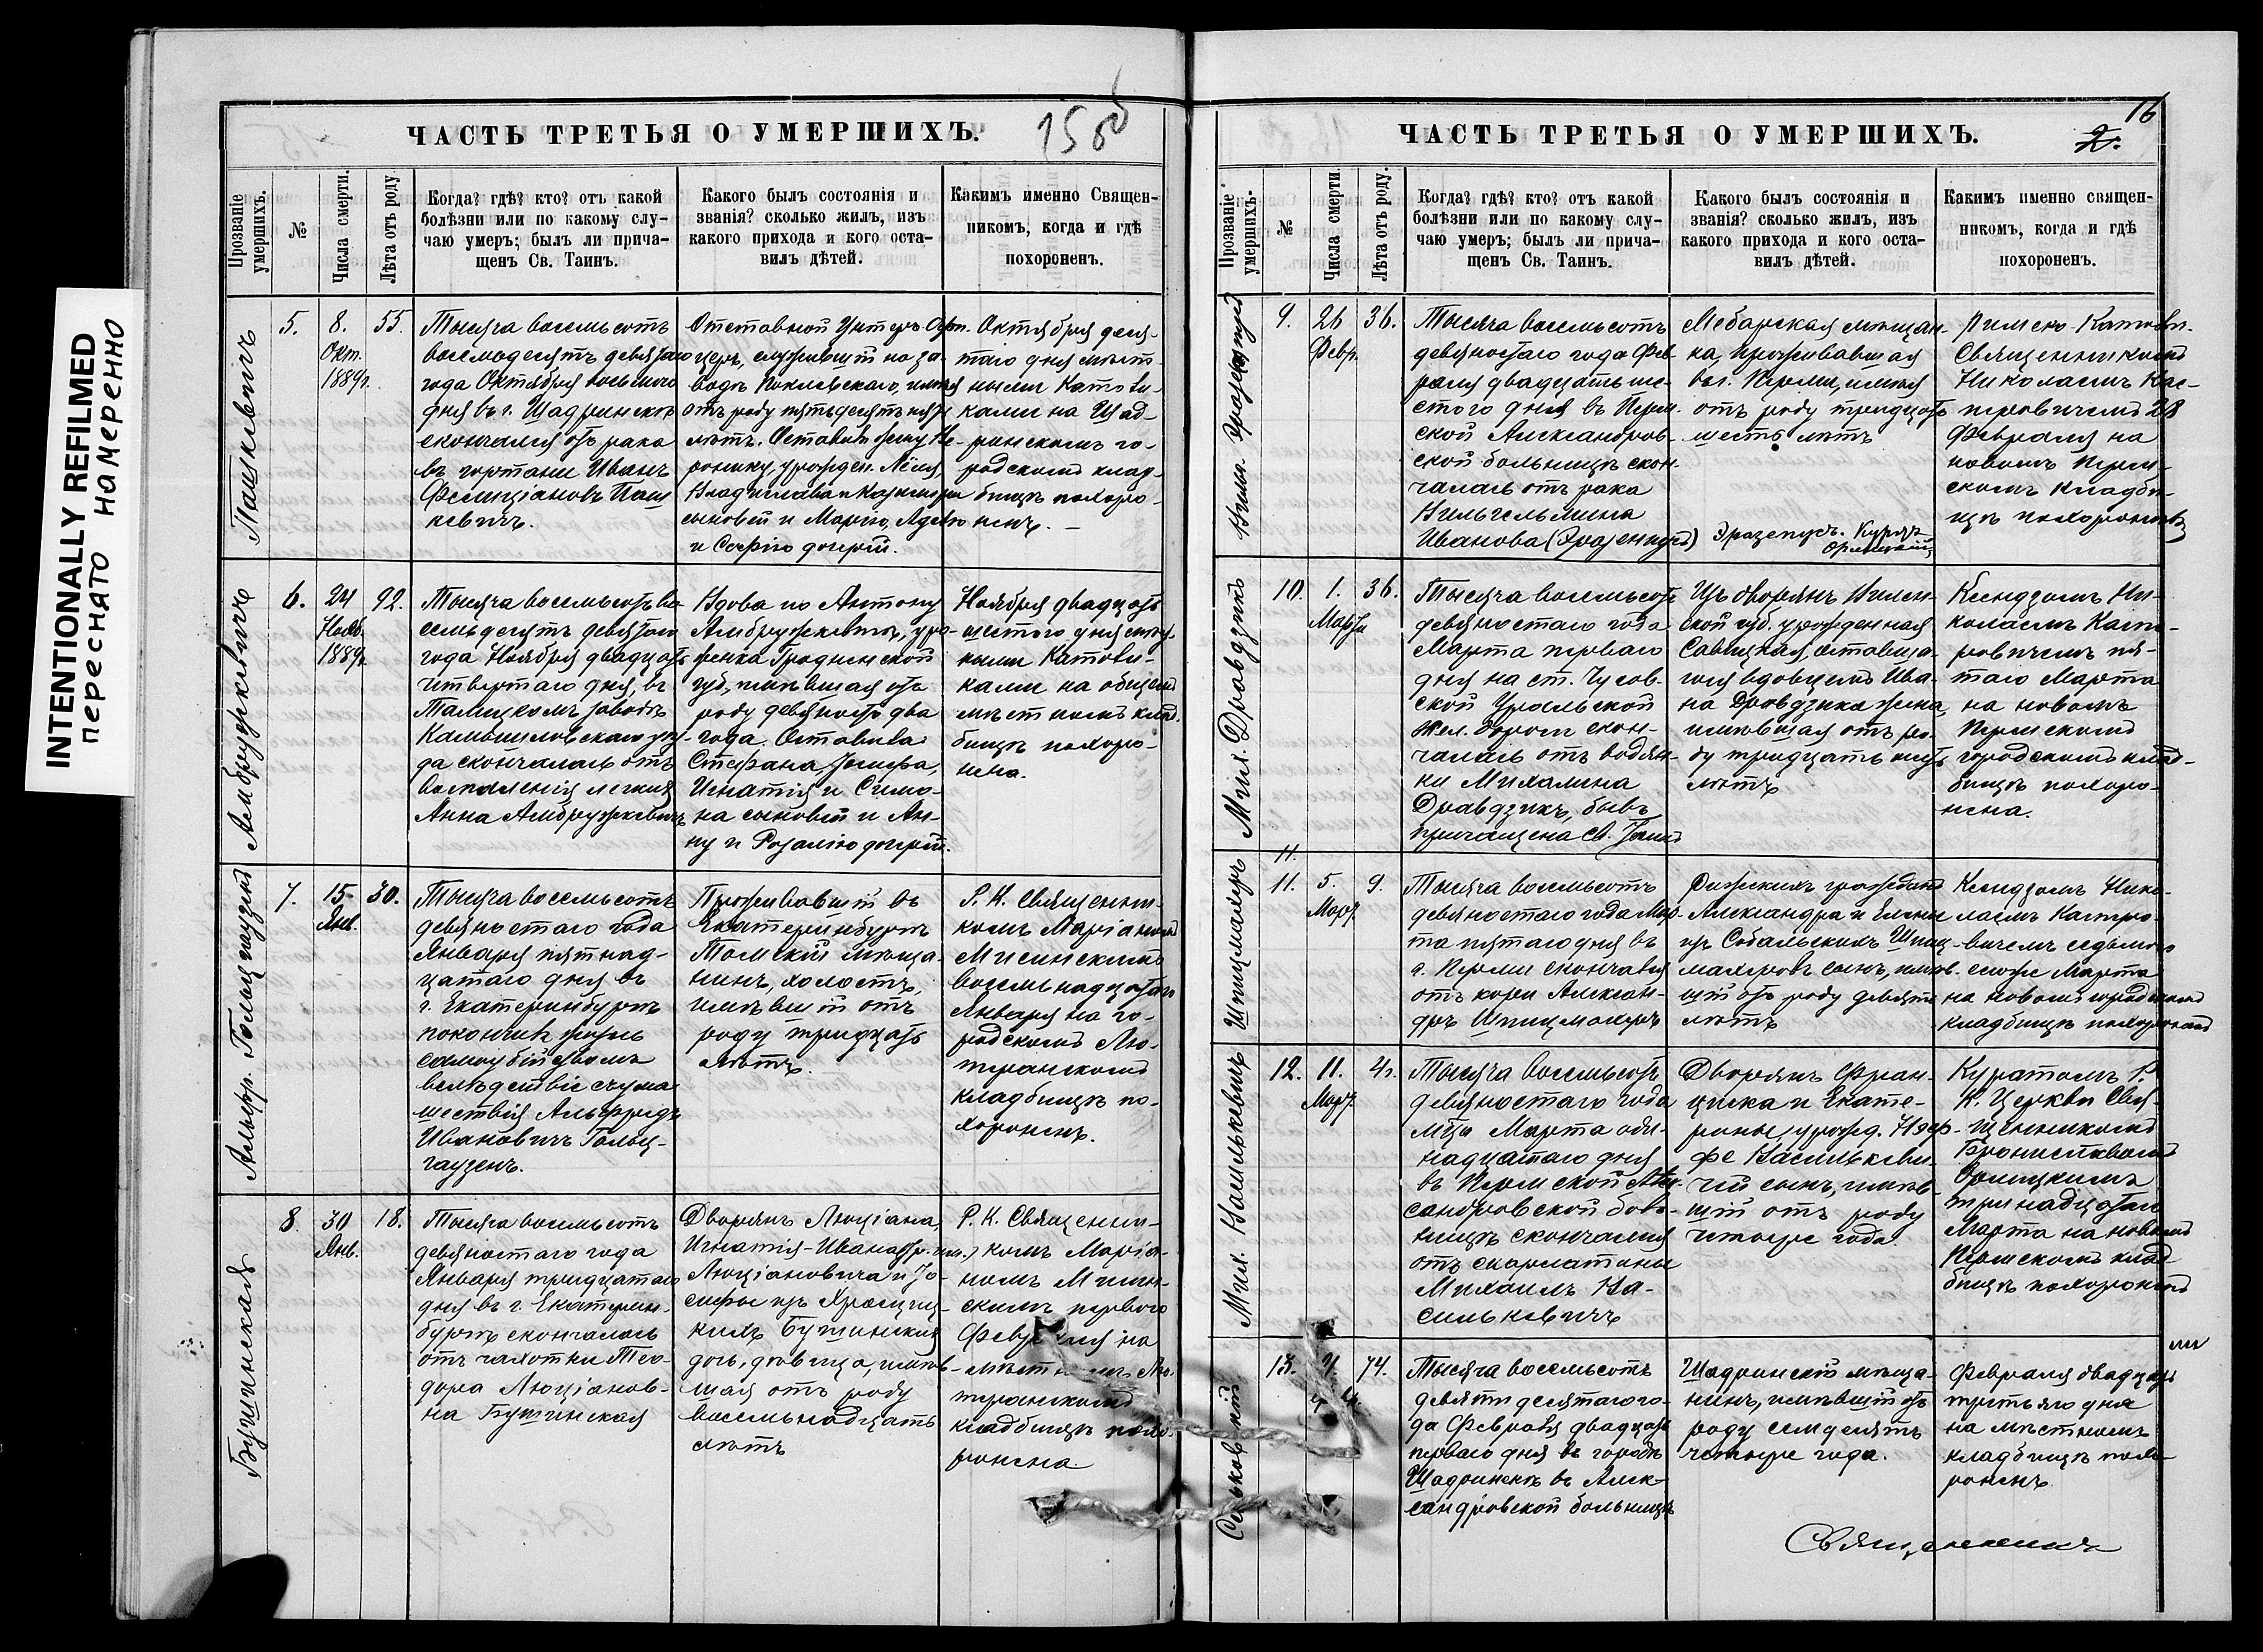 INTENTIONALLY REFILMED
переснято намеренно
ЧАСТЬ ТРЕТЬЯ О УМЕРШИХЪ.
15 об
Прозваніе умершихъ.
№
Числа смерти.
Лѣта отъ роду
Когда? гдѣ? кто? отъ какой
болѣзни или по какому слу-
чаю умеръ; былъ ли прича-
щенъ Св. Таинъ.
Какого былъ состоянія и
званія? сколько жилъ, изъ
какого прихода и кого оста-
вилъ дѣтей.
Какимъ именно Священ-
никомъ, когда и гдѣ
похороненъ.
Пашкевичъ
5.
8.
Окт.
1889г.
55.
Тысяча восемьсотъ
восмьдесятъ девятаго
года Октября восьмого
дня въ г. Шадринскѣ
скончался отъ рака
въ гортани Иванъ
Фелиціановъ Паш
кевичъ.
Отставной Унтеръ Офи-
церъ, служившій на за-
водѣ Поклевскаго, имѣя
отъ роду пятьдесятъ пять
лѣтъ. Оставилъ жену Ве-
ронику, урожден.
Владислава и Казимира
сыновей и Марію,
и Софію дочерей.
Октября деся-
таго дня мѣст-
ными Католи-
ками на Шад-
ринскомъ го-
родскомъ клад-
бищѣ похоро-
ненъ. —
Амбружкевичъ
6.
24
Нояб.
1889г.
92.
Тысяча восемьсотъ во-
семьдесятъ девятаго
года Ноября двадцать
четвертаго дня, въ
Талицкомъ заводѣ
Камышловскаго уѣз-
да скончалась отъ
воспаленія легкихъ
Анна Амбружкевичъ
Вдова по Антону
Амбружкевичъ, уро-
женка Гродненской
губ., имѣвшая отъ
роду девяносто два
года. Оставила
Стефана, Іосифа,
Игнатія и Симо-
на сыновей и Ан-
ну и Розалію дочерей.
Ноября двадцать
шестого дня мѣст-
ными Католи-
ками на общемъ
мѣстномъ клад-
бищѣ похоро-
нена.
Альфр. Гольцгаузенъ
7.
15
Янв.
30.
Тысяча восемьсотъ
девяностаго года
Января пятнад-
цатаго дня въ
г. Екатеринбургѣ
покончилъ жизнь
самоубійствомъ
вслѣдствіе съума-
шествія Альфредъ
Ивановичъ Гольц-
гаузенъ.
Проживавшій въ
Екатеринбургѣ
Томскій мѣща-
нинъ, холостъ,
имѣвшій отъ
роду тридцать
лѣтъ.
Р. К. Священни-
комъ Маріаномъ
Мисинскимъ
восемьнадцатаго
Января на го-
родскомъ Лю-
теранскомъ
кладбищѣ по-
хороненъ.
Бушинская
8.
30
Янв.
18.
Тысяча восемьсотъ
девяностаго года
Января тридцатаго
дня въ г. Екатерин-
бургѣ скончалась
отъ чахотки Тео-
дора Люціанов-
на Бушинская
Дворянъ Люціана,
Игнатія-Ивана
Люціановича и Іо-
сифы изъ
кихъ Бушинскихъ
дочь, дѣвица, имѣв-
шая отъ роду
восемьнадцать
лѣтъ
Р. К. Священни-
комъ Маріа-
номъ Мисин-
скимъ перваго
Февраля на
мѣстномъ Лю-
теранскомъ
кладбищѣ похо-
ронена.
16
2.
ЧАСТЬ ТРЕТЬЯ О УМЕРШИХЪ.
Прозваніе умершихъ.
№
Числа смерти.
Лѣта отъ роду.
Когда? гдѣ? кто? отъ какой
болѣзни или по какому слу-
чаю умеръ; былъ ли прича-
щенъ Св. Таинъ.
Какого былъ состоянія и
званія? сколько жилъ, изъ
какого прихода и кого оста-
вилъ дѣтей.
Какимъ именно священ-
никомъ, когда и гдѣ
похороненъ.
9.
26
Февр.
36.
Тысяча восемьсотъ
девяностаго года Фев-
раля двадцать ше-
стого дня въ Перм-
ской Александров-
ской больницѣ скон-
чалась отъ рака
Вильгельмина
Иванова
мѣщан-
ка, проживавшая
въ г. Перми, имѣя
отъ роду тридцать
шесть лѣтъ
Римско-Католич.
Священникомъ
Николаемъ Кас-
перовичемъ 28
Февраля на
новомъ Перм-
скомъ кладби-
щѣ похоронена
Мих. Дровдзикъ
10.
1.
Марта
36.
Тысяча восемьсотъ
девяностаго года
Марта перваго
дня на ст. Чусов-
ской Уральской
жел. дороги скон-
чалась отъ водян-
ки Михалина
Дравдзикъ, бывъ
причащена Св. Таинъ
Изъ дворянъ Вилен-
ской губ. урожденная
Савицкая, оставша-
гося вдовцемъ Ива-
на Дровдзика жена,
имѣвшая отъ ро-
ду тридцать шесть
лѣтъ
Ксендзомъ Ни-
колаемъ Каспе-
ровичемъ пя-
таго Марта
на новомъ
Пермскомъ
городскомъ клад-
бищѣ похоро-
нена.
11.
Шпицмахеръ
11.
5.
Март.
9.
Тысяча восемьсотъ
девяностаго года Мар-
та пятаго дня въ
г. Перми скончался
отъ кори Алексан-
дръ Шпицмахеръ
Рижскихъ гражданъ
Александра и Елены
изъ Собальскихъ Шпиц-
махеровъ сынъ, имѣв-
шій отъ роду девять
лѣтъ
Ксендзомъ Нико-
лаемъ Каспро-
вичемъ седьмого
сего же Марта
на новомъ городскомъ
кладбищѣ похороненъ
Мих. Васильковичъ
12.
11.
Март.
4г.
Тысяча восемьсотъ
девяностаго года
м-ца Марта оди-
надцатаго дня
въ Пермской Алек-
сандровской боль-
ницѣ скончался
отъ скарлатины
Михаилъ Ва-
силькевичъ
Дворянъ Фран-
циска и Екате-
рины, урожд.
Василькеви-
чей сынъ, имѣв-
шій отъ роду
четыре года.
Куратомъ Р.
К. Церкви Свя-
щенникомъ
Брониславомъ
Орлицкимъ
тринадцатаго
Марта на новомъ
Пермскомъ клад-
бищѣ похороненъ
13.
74.
Тысяча восемьсотъ
девятидесятаго го-
да Февраля двадцать
перваго дня въ городѣ
Шадринскѣ въ Алек-
сандровской больницѣ
Шадринскій мѣща-
нинъ, имѣвшій отъ
роду семдесятъ
четыре года.
Февраля двадцать
третьяго дня
на мѣстномъ
кладбищѣ похо-
роненъ
Священникъ